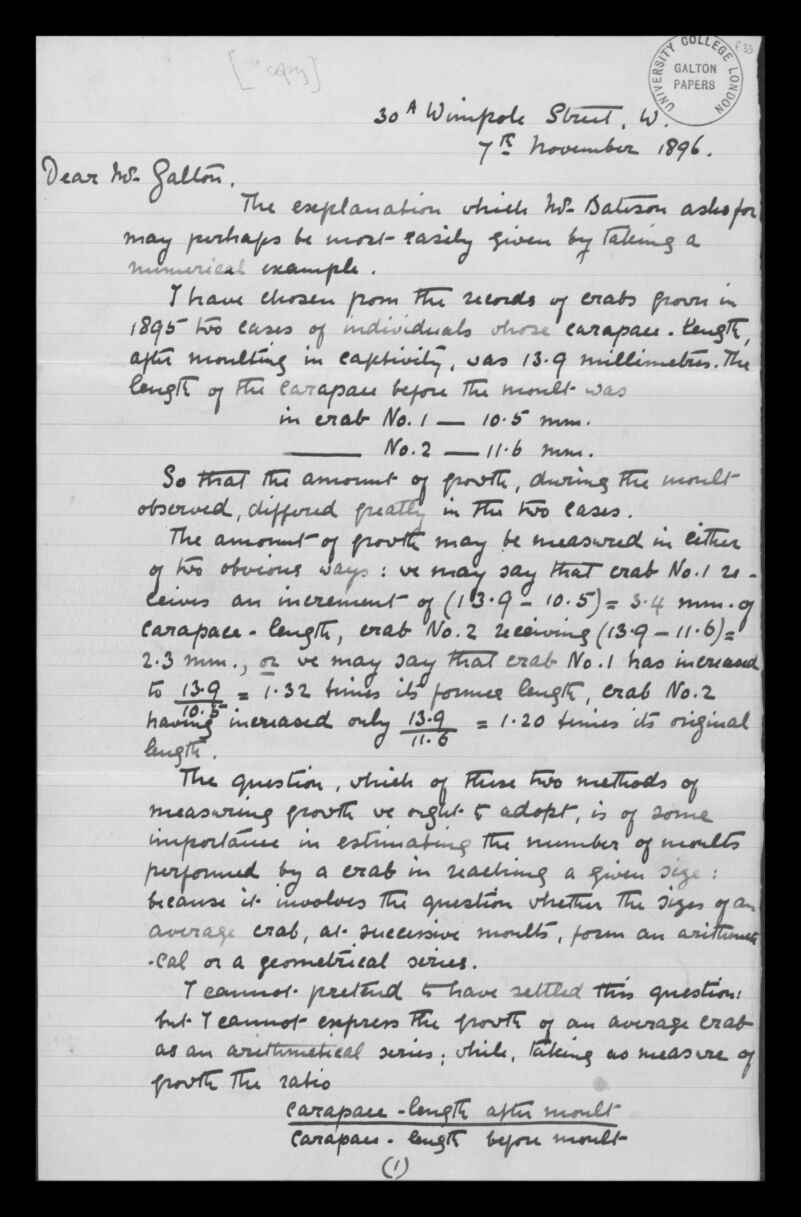 [copy]
UNIVERSITY COLLEGE LONDON
GALTON
PAPERS
f 33
30A Wimpole Street, W.
7th November 1896.
Dear Mr. Galton,
The explanation which Mr. Bateson asks for
may perhaps be most easily given by taking a
numerical example.
I have chosen from the records of crabs grown in
1895 two cases of individuals whose carapace-length,
after moulting in captivity, was 13.9 millimetres. The
length of the carapace before the moult was
in crab No. 1 — 10.5 mm.
—— No. 2 — 11.6 mm.
So that the amount of growth, during the moult
observed, differed greatly in the two cases.
The amount of growth may be measured in either
of two obvious ways: we may say that crab No. 1 re-
ceives an increment of (13.9 – 10.5) = 3.4 mm. of
carapace-length, crab No. 2 receiving (13.9 – 11.6) =
2.3 mm., or we may say that crab No. 1 has increased
to 13.9/10.5 = 1.32 times its former length, crab No. 2
having increased only 13.9/11.6 = 1.20 times its original
length.
The question, which of these two methods of
measuring growth we ought to adopt, is of some
importance in estimating the number of moults
performed by a crab in reaching a given size:
because it involves the question whether the sizes of an
average crab, at successive moults, form an arithmeti
-cal or a geometrical series.
I cannot pretend to have settled this question:
but I cannot express the growth of an average crab
as an arithmetical series; while, taking as measure of
growth the ratio
carapace-length after moult
carapace-length before moult
(1)